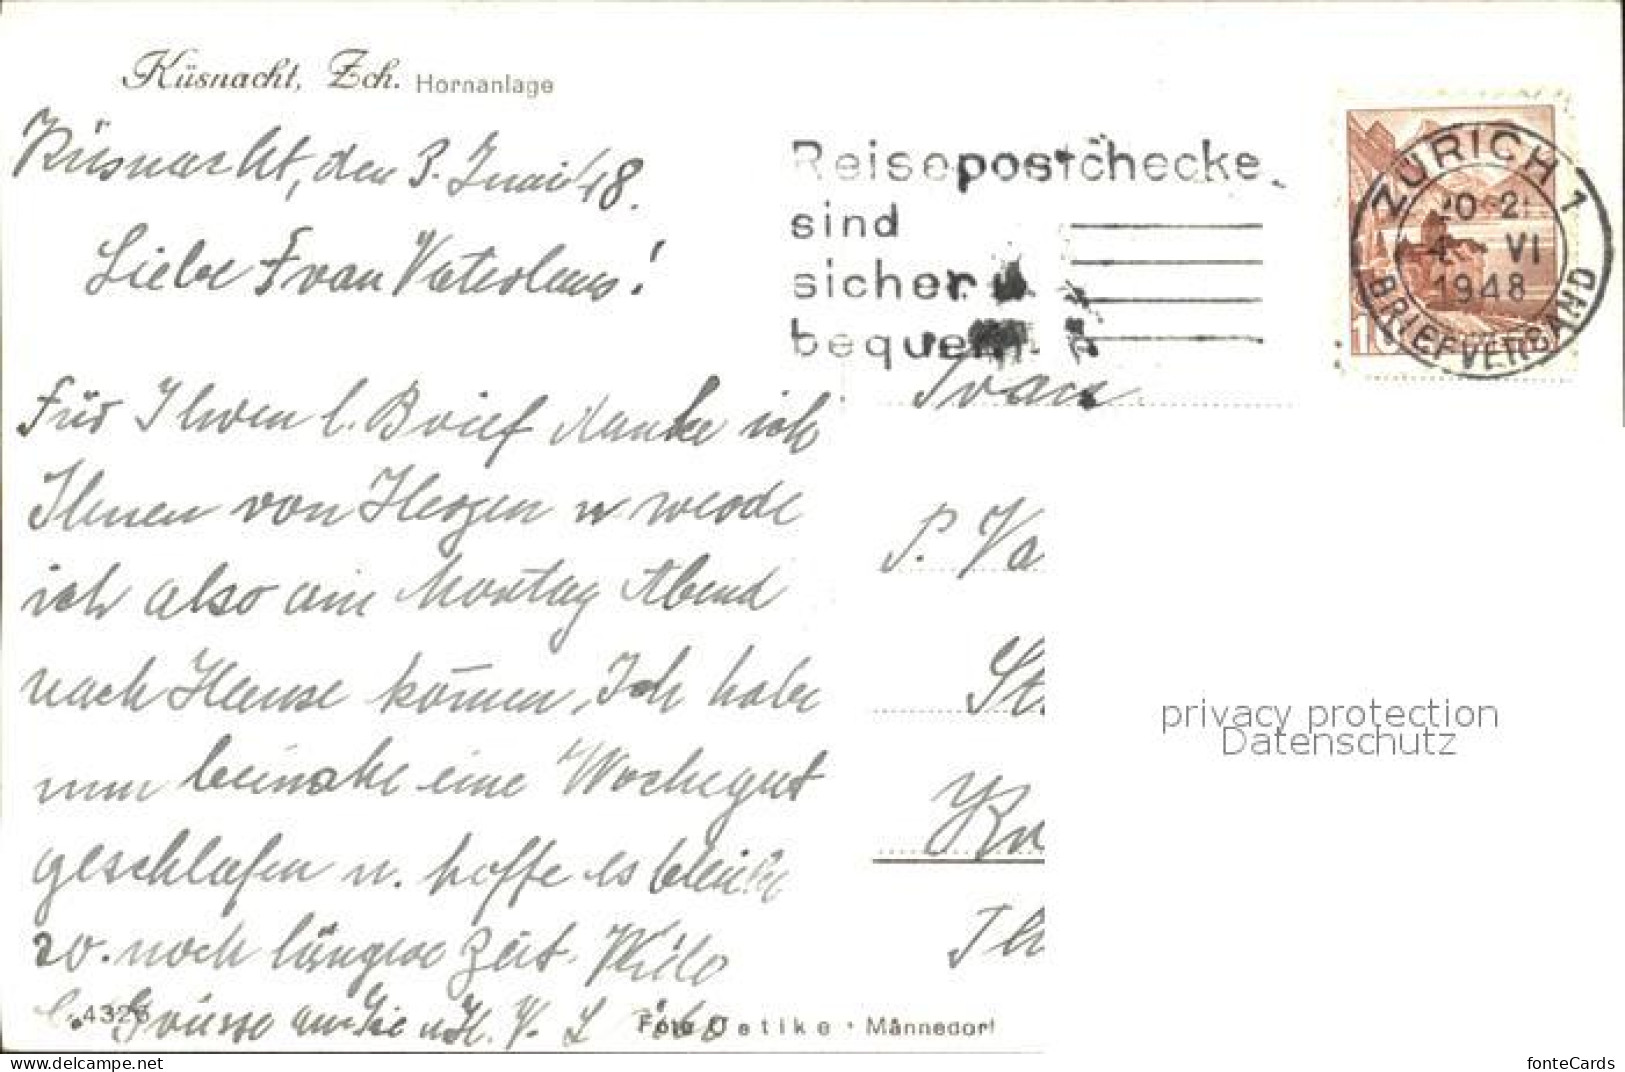 Küsnacht, Zch. Hornanlage
Küsnacht, den 3. Juni 48.
Liebe Frau Vaterlaus!
Für Ihren l. Brief danke ich
Ihnen von Herzen u werde
ich also am Montag Abend
nach Hause kommen, Ich habe
nun beinahe eine Woche gut
geschlafen u. hoffe es bleibe
so noch längere Zeit. Viele
l. Grüsse an Sie u H. V. L
4326
Foto Oetike • Männedorf
Reisepostchecke
sind
sicher u
bequem
ZÜRICH 1
20-2
4. VI
1948
BRIEFVERSAND
10
Frau
P. Va
St.
Kr
Th
privacy protection
Datenschutz
the-miss-den.com
fonteCards